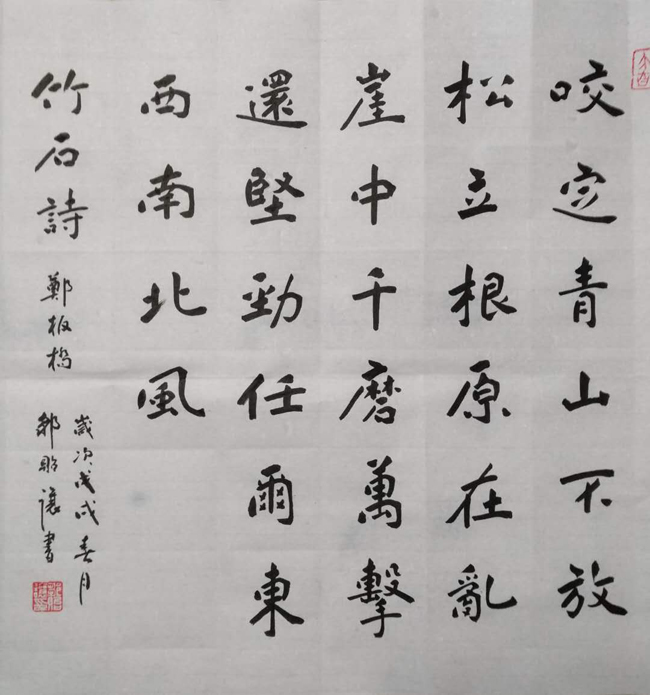 咬定青山不放
松立根原在亂
崖中千磨萬擊
還堅勁任爾東
西南北風
竹石詩 鄭板橋
歲次戊戌春月
讓書